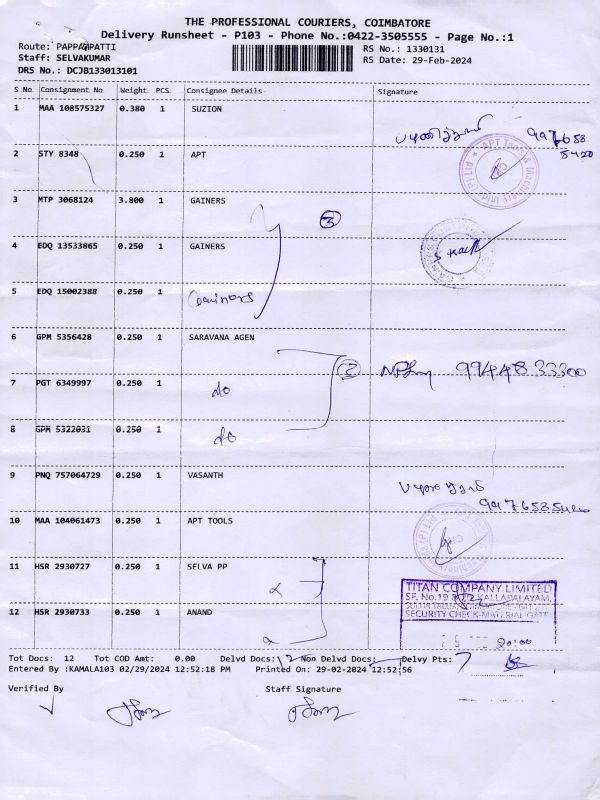 THE PROFESSIONAL COURIERS, COIMBATORE
Delivery Runsheet - P103 - Phone No.:0422-3505555 - Page No.:1
Route: PAPPAMPATTI
RS No.: 1330131
Staff: SELVAKUMAR
RS Date: 29-Feb-2024
DRS No.: DCJB133013101
S No Consignment No Weight PCS Consignee Details Signature
1 MAA 108575327 0.380 1 SUZION
2 STY 8348 0.250 1 APT
3 MTP 3068124 3.800 1 GAINERS
3
4 EDQ 13533865 0.250 1 GAINERS
5 EDQ 15002388 0.250 1 Gainers
6 GPM 5356428 0.250 1 SARAVANA AGEN
3 9944833300
7 PGT 6349997 0.250 1 do
8 GPM 5322031 0.250 1 do
9 PNQ 757064729 0.250 1 VASANTH
10 MAA 104061473 0.250 1 APT TOOLS
11 HSR 2930727 0.250 1 SELVA PP
TITAN COMPANY LIMITED
KALLAPALAYAM,
SECURITY CHECK-MATERIAL GATE
12 HSR 2930733 0.250 1 ANAND
20:00
Tot Docs: 12 Tot COD Amt: 0.00 Delvd Docs: 12 Non Delvd Docs: Delvy Pts: 7
Entered By :KAMALA103 02/29/2024 12:52:18 PM Printed On: 29-02-2024 12:52:56
Verified By Staff Signature